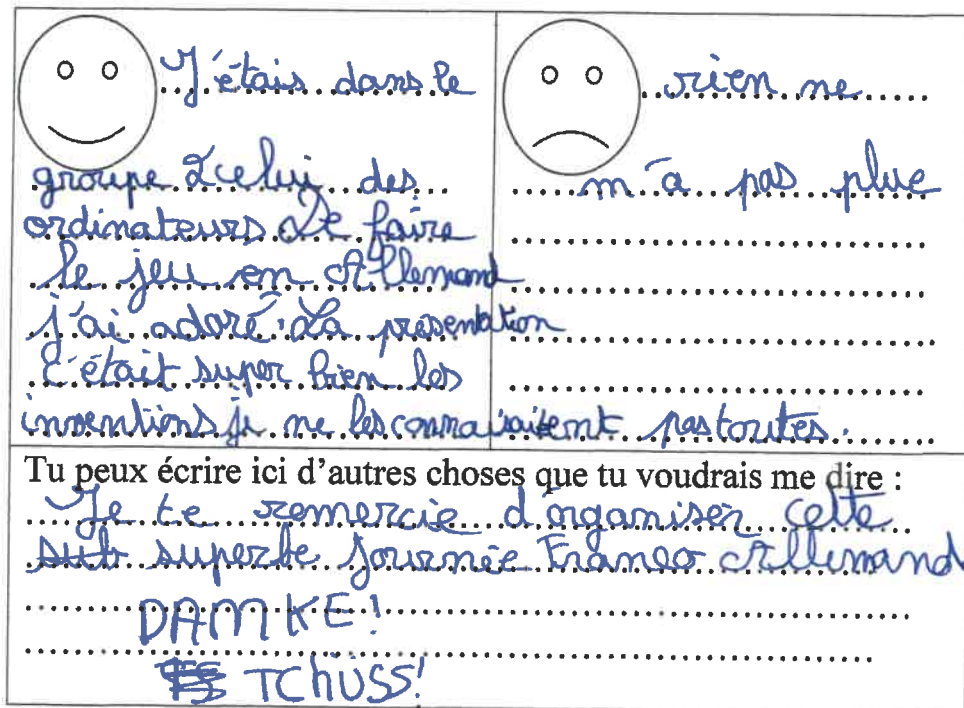 J'étais dans le
groupe 2 celui des
ordinateurs De faire
le jeu en Allemand
j'ai adoré. La présentation
c'était super bien les
inventions je ne les connaissaitent pas toutes.
rien ne
m'a pas plue
Tu peux écrire ici d'autres choses que tu voudrais me dire :
Je te remercie d'organiser cette
superbe journée Franco Allemand
DAMKE!
TChÜSS!